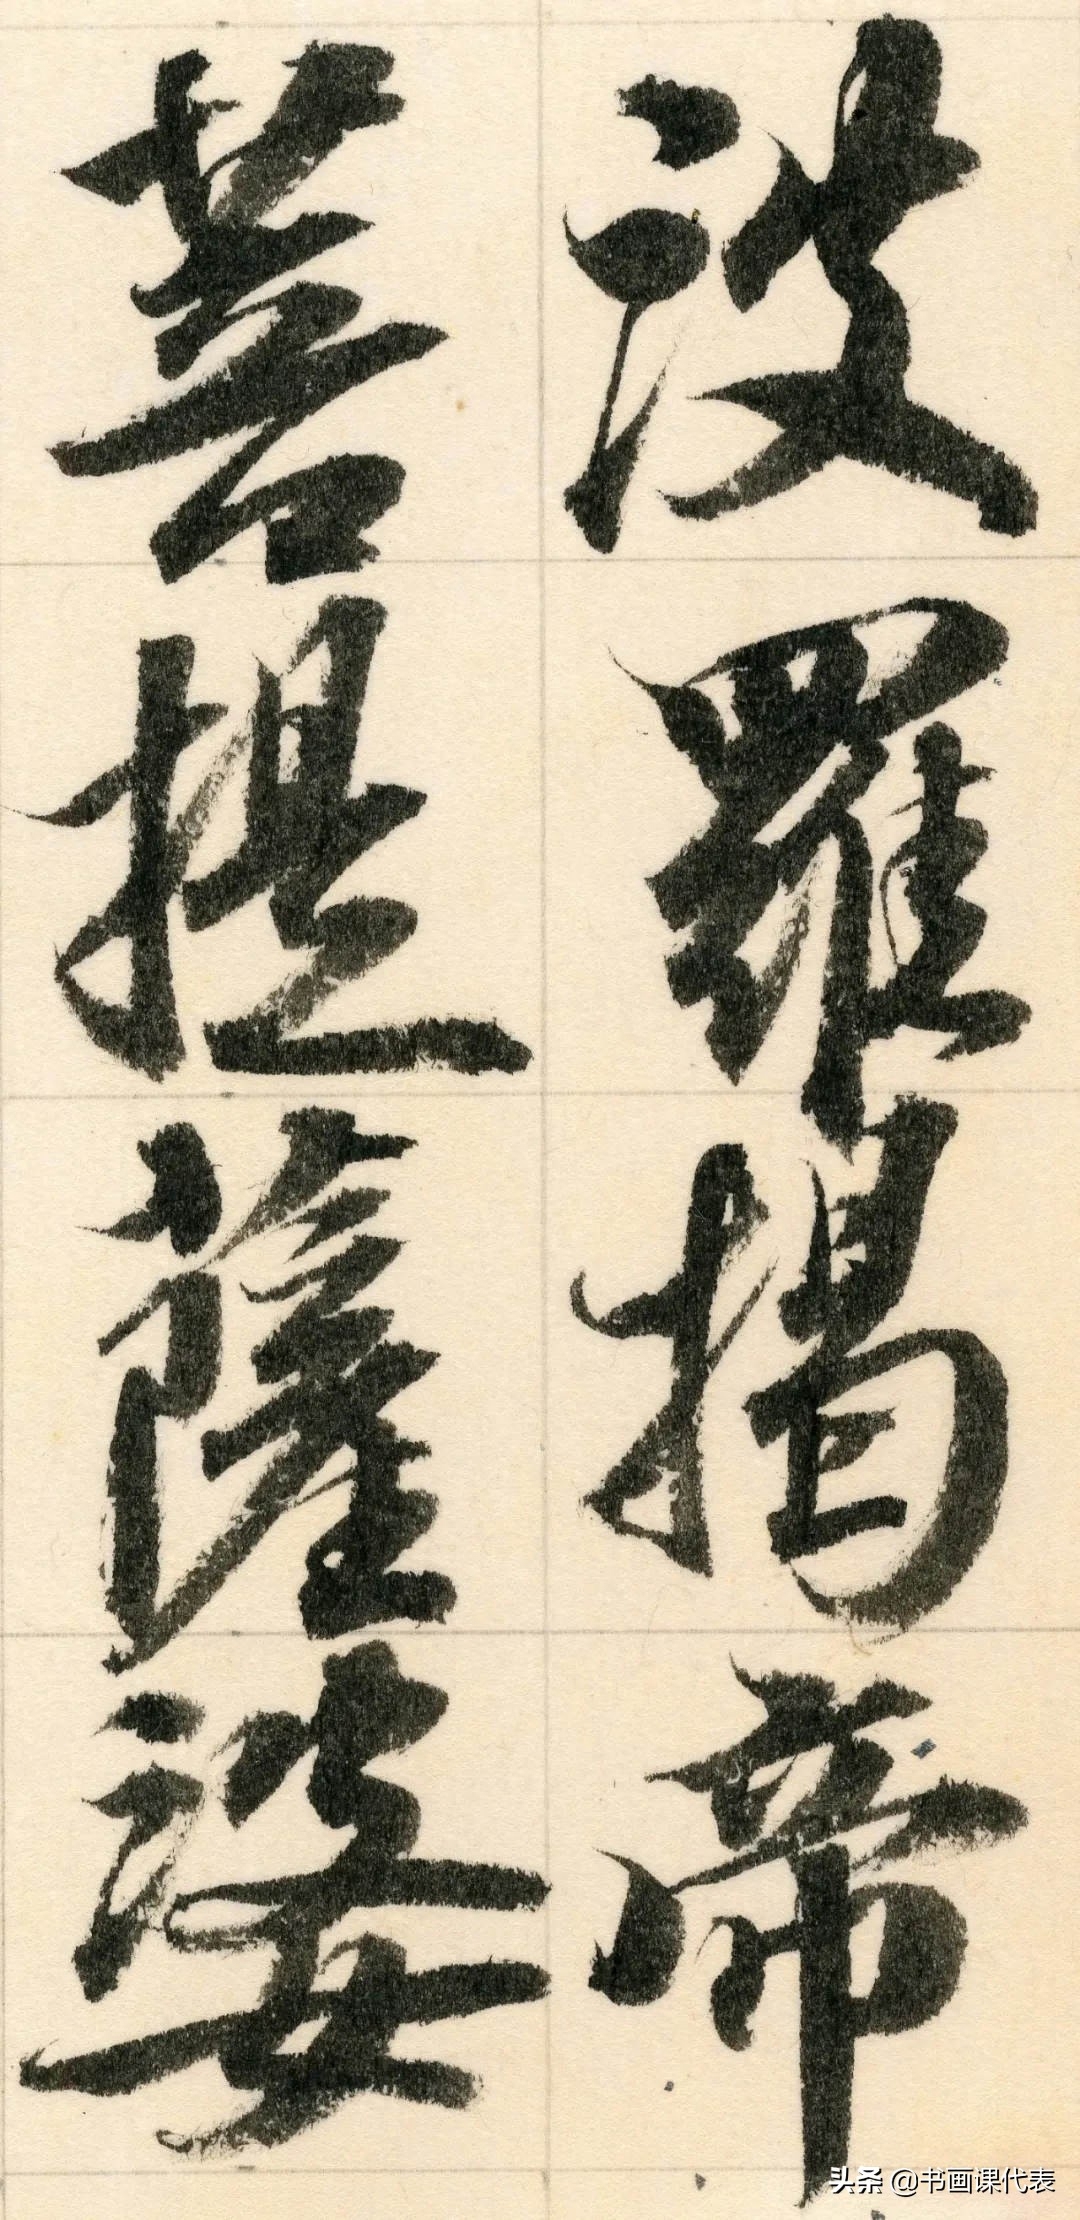 波羅揭帝
菩提薩婆
头条 @书画课代表